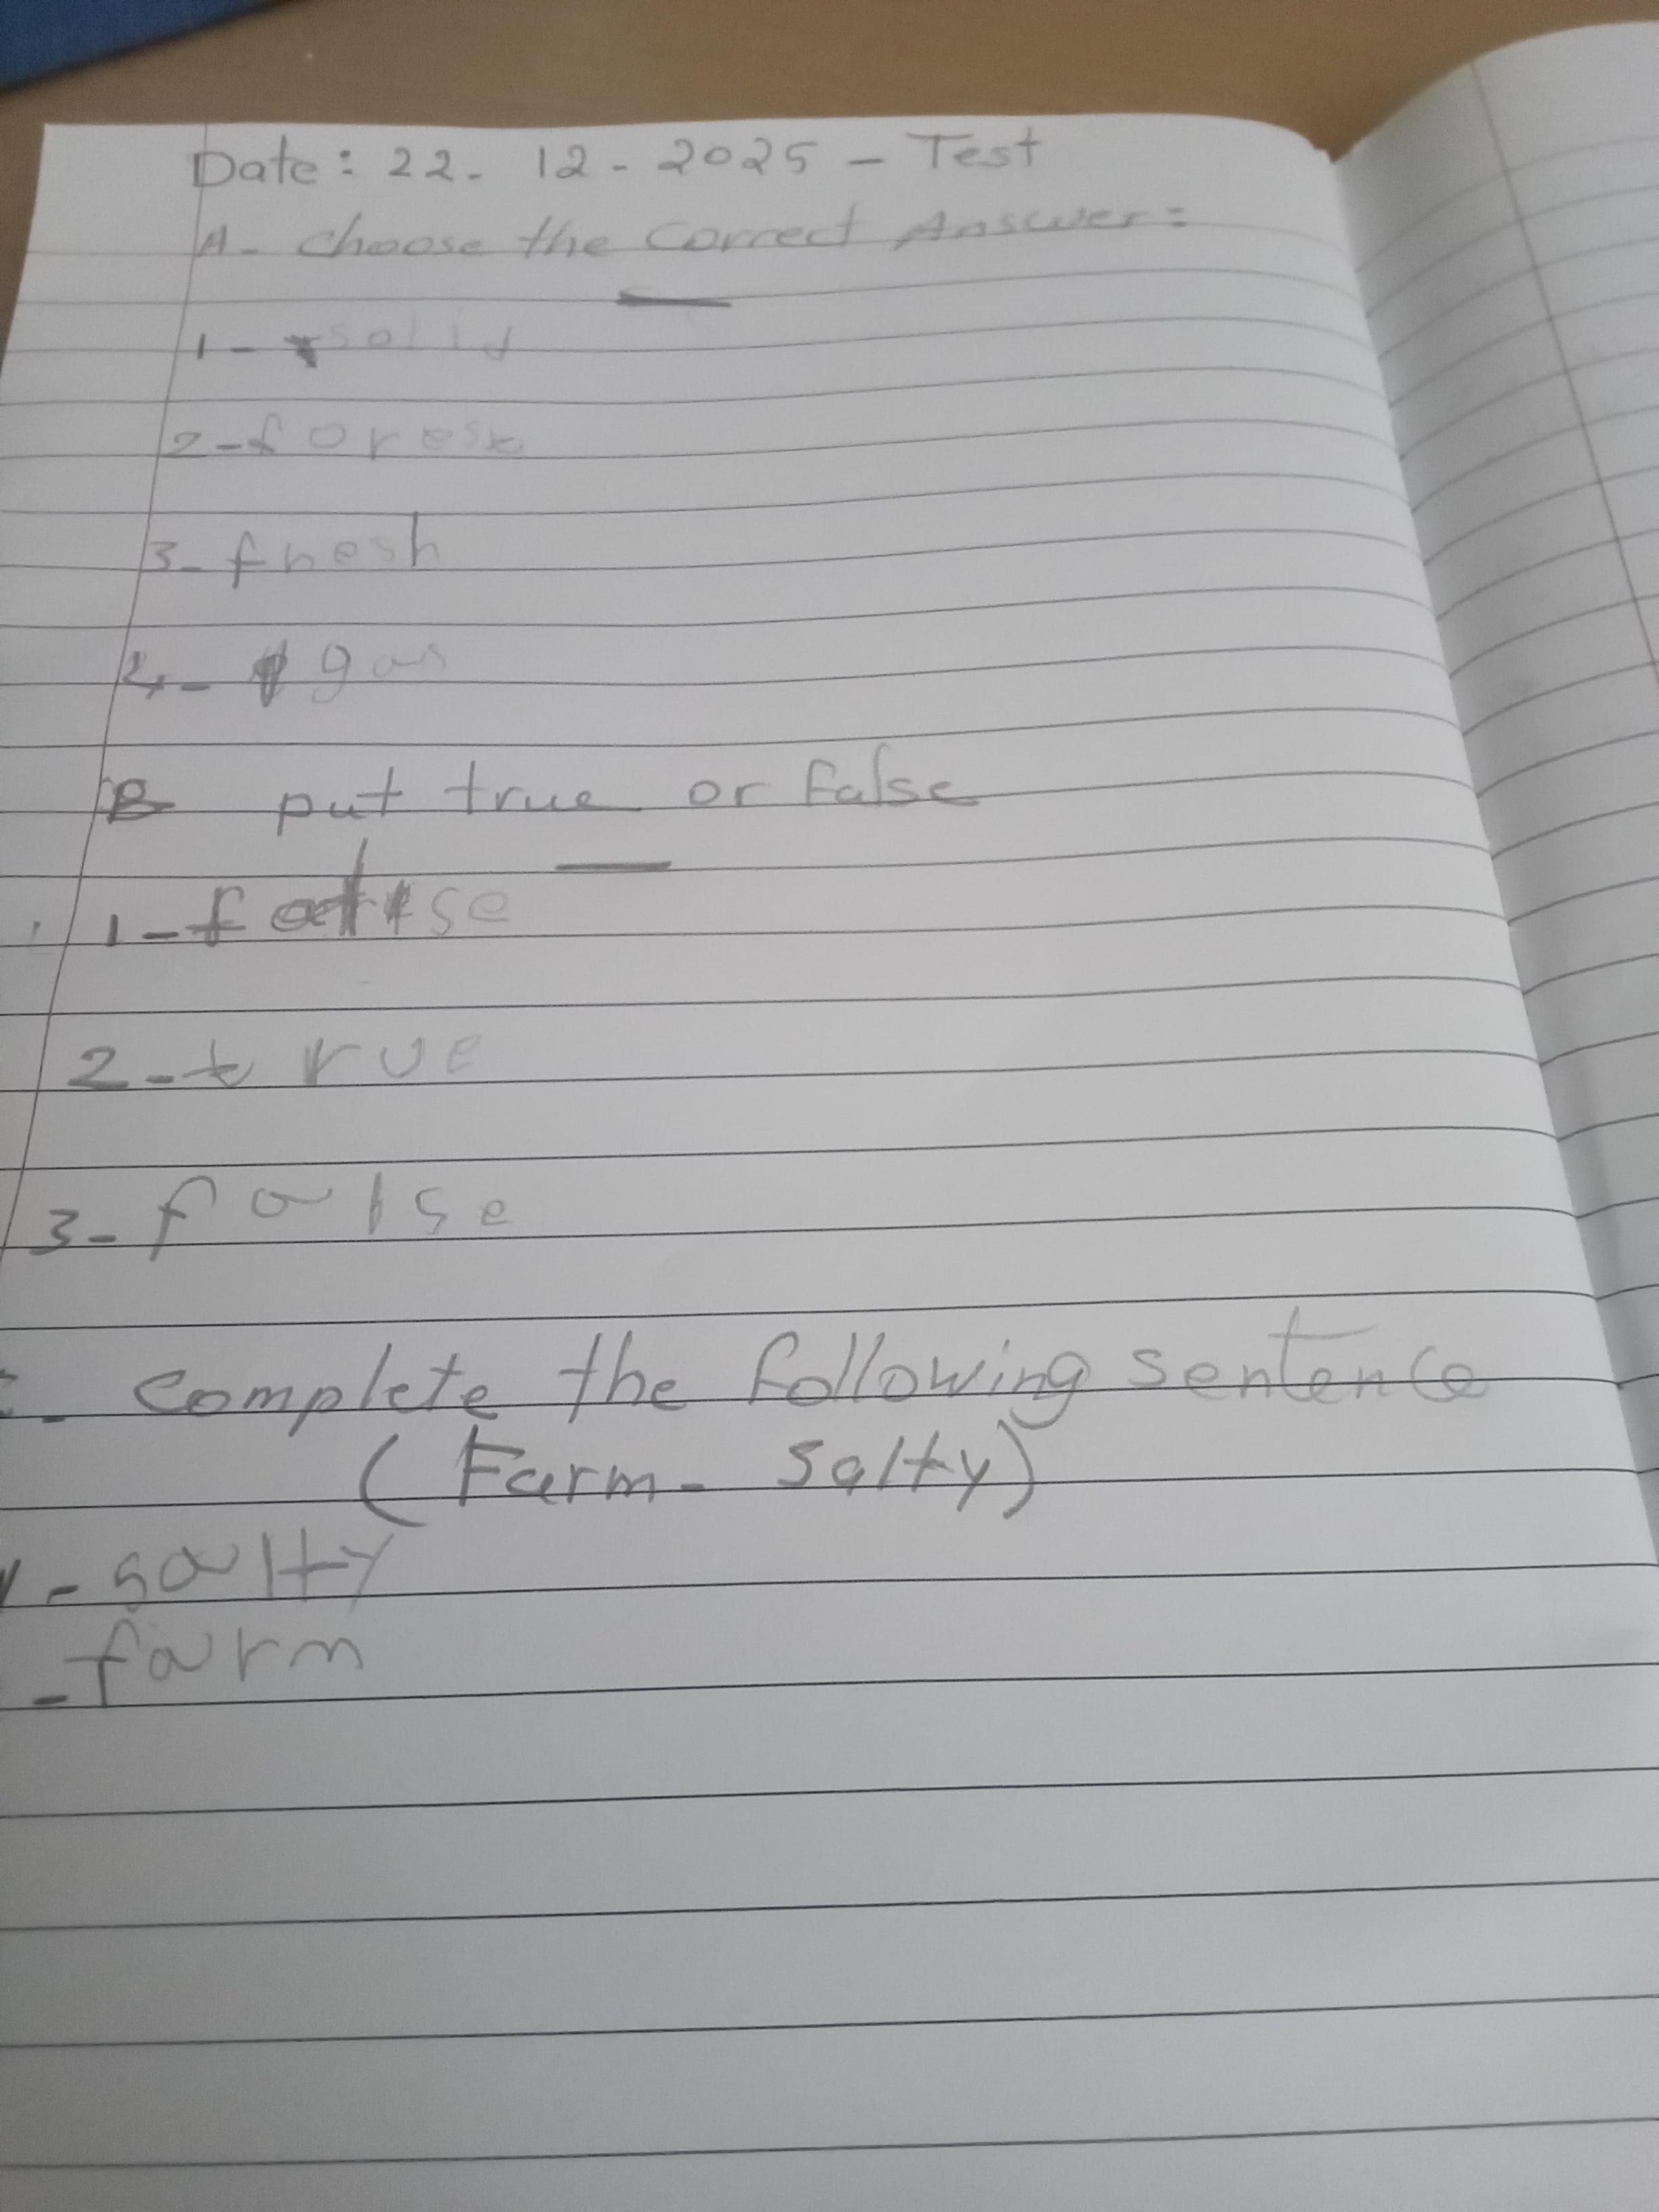 Date: 22. 12 - 2025 - Test
A- choose the correct Answer:
1- solid
2- forest
3- fresh
4- gas
B put true or false
1- false
2- true
3- false
- complete the following sentence
(Farm- Salty)
1- salty
- farm